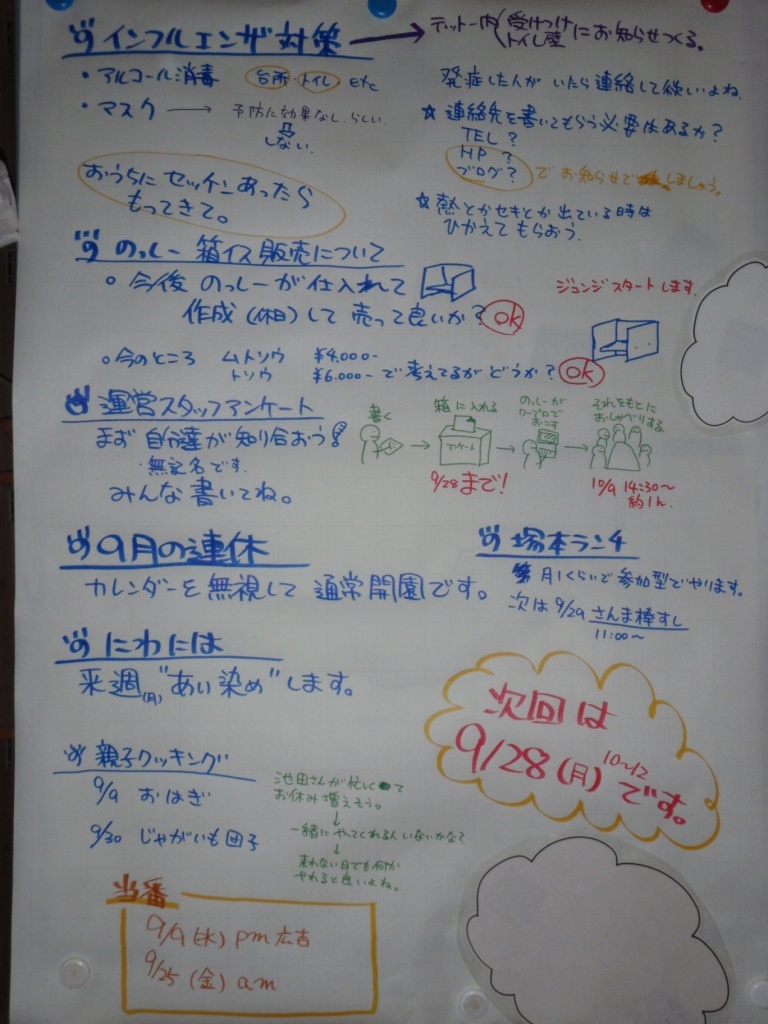 インフルエンザ対策 → 内(受けつけ トイレ壁)にお知らせつくる。
・アルコール消毒 台所・トイレ etc
・マスク → 予防に効果なし、らしい。
しない。
おうちに セッケンあったら
もってきて。
発症した人が いたら連絡して欲しいよね。
☆連絡先を書いてもらう必要はあるか?
TEL?
HP?
ブログ? でお知らせで しましょう。
☆熱とかセキとか出ている時は
ひかえてもらおう。
のっしー 箱イス販売について
○今後 のっしーが仕入れて
作成(休日)して 売って良いか? OK
ジョンジ スタートします。
○今のところ ムトソウ ¥4,000-
トソウ ¥6,000- で考えてるがどうか? OK
運営スタッフアンケート
まず 自分達が知り合おう!
・無記名です。
みんな書いてね。
書く
箱に入れる
アンケート
9/28まで!
のっしーが
ワープロで
おこす
それをもとに
おしゃべりする
10/9 14:30〜
約1h.
9月の連休
カレンダーを無視して 通常開園です。
塚本ランチ
月1くらいで参加型でやります。
次は9/29 さんま棒すし
11:00〜
にわには
来週(月)"あい染め"します。
次回は
9/28(月) 10〜12 です。
親子クッキング
9/9 おはぎ
9/30 じゃがいも団子
池田さんが忙しくて
お休み増えそう。
↓
一緒にやってくれる人いないかな?
↓
来れない日でも何か
やれると良いよね。
当番
9/9(水) pm 広吉
9/25(金) am